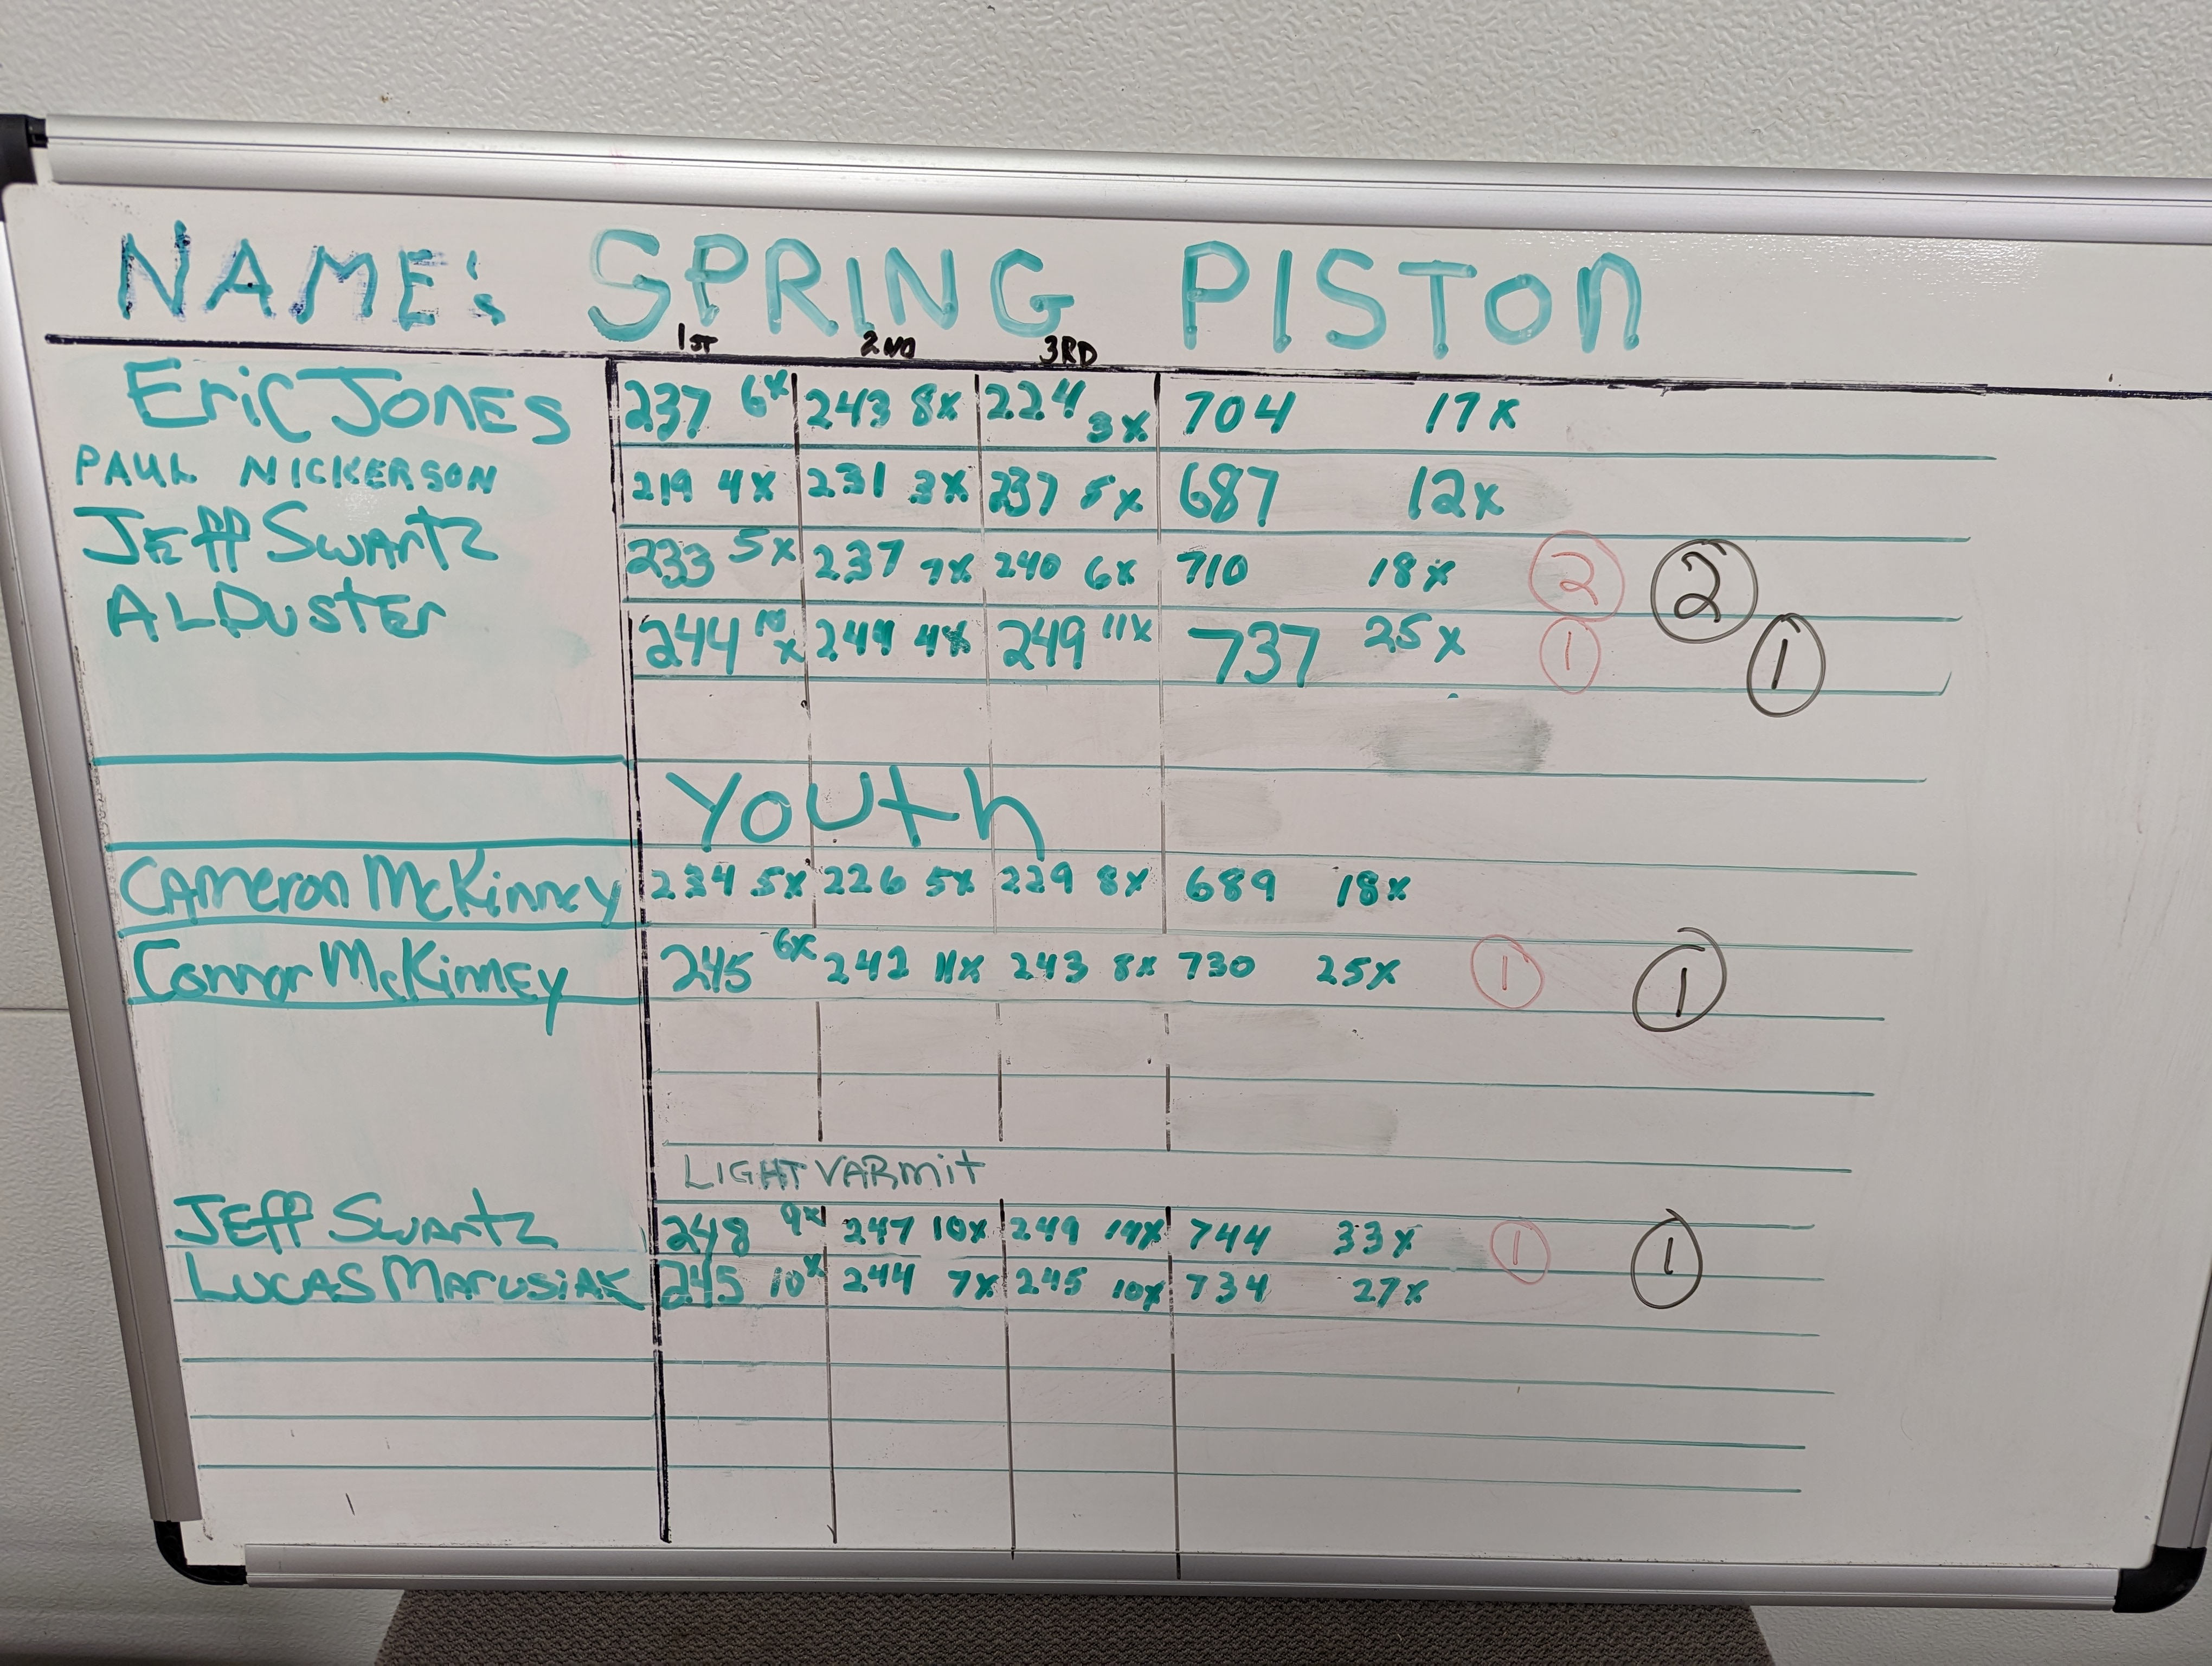 NAME: SPRING PISTON
1ST 2ND 3RD
Eric Jones 237 6x 243 8x 224 3x 704 17x
PAUL NICKERSON 219 4x 231 3x 237 5x 687 12x
Jeff Swartz 233 5x 237 7x 240 6x 710 18x 2 2
AL Duster 244 10x 244 4x 249 11x 737 25x 1 1
Youth
Cameron McKinney 234 5x 226 5x 229 8x 689 18x
Connor McKinney 245 6x 242 11x 243 8x 730 25x 1 1
LIGHT VARMIT
Jeff Swartz 248 9x 247 10x 249 14x 744 33x 1 1
LUCAS Marusiak 245 10x 244 7x 245 10x 734 27x